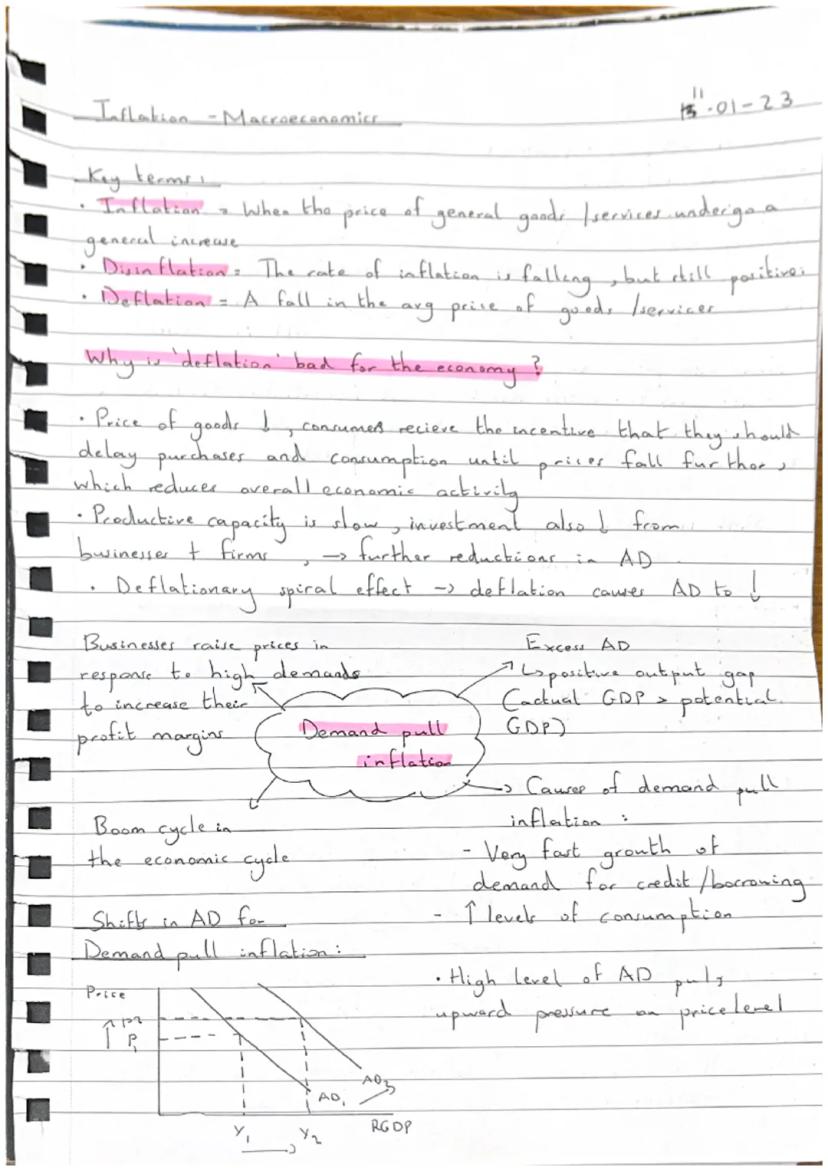 Inflation - Macroeconomics
11.01-23
Key terms:
· Inflation = When the price of general goods /services undergo a
general increase
· Disinflation = The rate of inflation is falling, but still positive.
· Deflation = A fall in the avg price of goods /services
Why is 'deflation' bad for the economy?
· Price of goods ↓, consumers recieve the incentive that they should
delay purchases and consumption until prices fall further,
which reduces overall economic activity
· Productive capacity is slow, investment also ↓ from
businesses + firms, → further reductions in AD
· Deflationary spiral effect → deflation causes AD to ↓
Businesses raise prices in
response to high demands
to increase their
profit margins
Excess AD
↳ positive output gap
(actual GDP > potential
GDP)
Demand pull
inflation
Boom cycle in
the economic cycle
→ Causes of demand pull
inflation:
- Very fast growth of
demand for credit /borrowing
- ↑ levels of consumption
· High level of AD puts
upward pressure on price level
Shifts in AD for
Demand pull inflation:
Price
↑ P2
P1
AD2
AD1
Y1 → Y2
RGDP